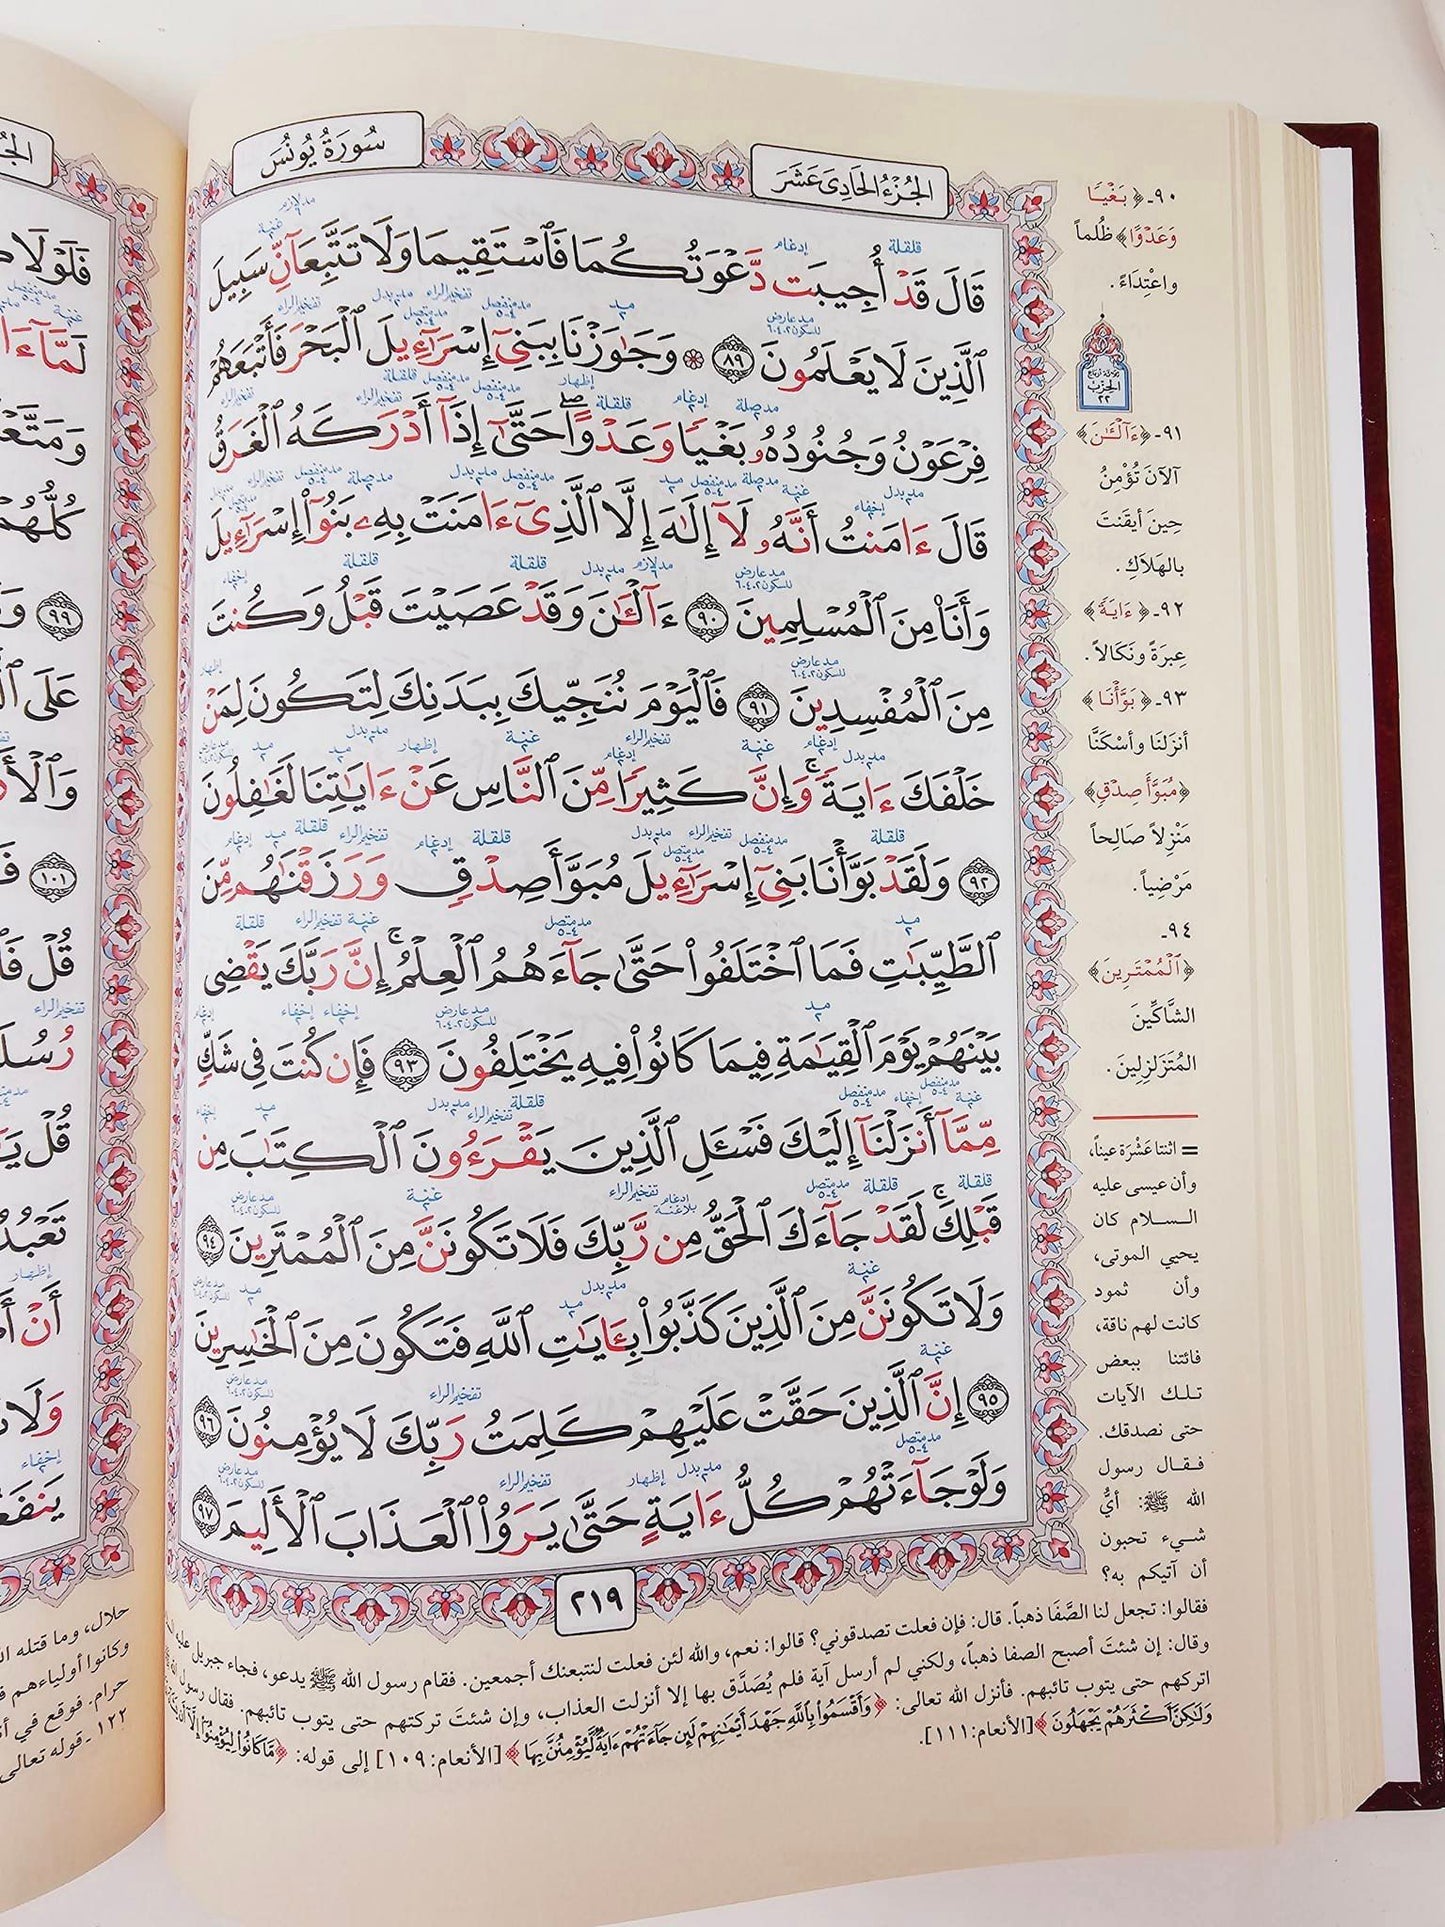 الجُزْءُ الحَادِى عَشَرَ
سُورَةُ يُونُسَ
قَالَ قَدْ أُجِيبَت دَّعْوَتُكُمَا فَٱسْتَقِيمَا وَلَا تَتَّبِعَآنِّ سَبِيلَ
ٱلَّذِينَ لَا يَعْلَمُونَ ٨٩ ۞ وَجَٰوَزْنَا بِبَنِىٓ إِسْرَٰٓءِيلَ ٱلْبَحْرَ فَأَتْبَعَهُمْ
فِرْعَوْنُ وَجُنُودُهُۥ بَغْيًا وَعَدْوًا ۖ حَتَّىٰٓ إِذَآ أَدْرَكَهُ ٱلْغَرَقُ
قَالَ ءَامَنتُ أَنَّهُۥ لَآ إِلَٰهَ إِلَّا ٱلَّذِىٓ ءَامَنَتْ بِهِۦ بَنُوٓا۟ إِسْرَٰٓءِيلَ
وَأَنَا۠ مِنَ ٱلْمُسْلِمِينَ ٩٠ ءَآلْـَٰٔنَ وَقَدْ عَصَيْتَ قَبْلُ وَكُنتَ
مِنَ ٱلْمُفْسِدِينَ ٩١ فَٱلْيَوْمَ نُنَجِّيكَ بِبَدَنِكَ لِتَكُونَ لِمَنْ
خَلْفَكَ ءَايَةً ۚ وَإِنَّ كَثِيرًا مِّنَ ٱلنَّاسِ عَنْ ءَايَٰتِنَا لَغَٰفِلُونَ
٩٢ وَلَقَدْ بَوَّأْنَا بَنِىٓ إِسْرَٰٓءِيلَ مُبَوَّأَ صِدْقٍ وَرَزَقْنَٰهُم مِّنَ
ٱلطَّيِّبَٰتِ فَمَا ٱخْتَلَفُوا۟ حَتَّىٰ جَآءَهُمُ ٱلْعِلْمُ ۚ إِنَّ رَبَّكَ يَقْضِى
بَيْنَهُمْ يَوْمَ ٱلْقِيَٰمَةِ فِيمَا كَانُوا۟ فِيهِ يَخْتَلِفُونَ ٩٣ فَإِن كُنتَ فِى شَكٍّ
مِّمَّآ أَنزَلْنَآ إِلَيْكَ فَسْـَٔلِ ٱلَّذِينَ يَقْرَءُونَ ٱلْكِتَٰبَ مِن
قَبْلِكَ ۚ لَقَدْ جَآءَكَ ٱلْحَقُّ مِن رَّبِّكَ فَلَا تَكُونَنَّ مِنَ ٱلْمُمْتَرِينَ ٩٤
وَلَا تَكُونَنَّ مِنَ ٱلَّذِينَ كَذَّبُوا۟ بِـَٔايَٰتِ ٱللَّهِ فَتَكُونَ مِنَ ٱلْخَٰسِرِينَ
٩٥ إِنَّ ٱلَّذِينَ حَقَّتْ عَلَيْهِمْ كَلِمَتُ رَبِّكَ لَا يُؤْمِنُونَ ٩٦
وَلَوْ جَآءَتْهُمْ كُلُّ ءَايَةٍ حَتَّىٰ يَرَوُا۟ ٱلْعَذَابَ ٱلْأَلِيمَ ٩٧
٢١٩
٩٠- ﴿بَغْيًا
وَعَدْوًا﴾ ظُلماً
واعْتِدَاءً.
الحِزْب
٢٢
٩١- ﴿ءَآلْـَٰٔنَ﴾
آلآنَ تُؤْمِنُ
حِينَ أيقَنتَ
بالهَلاَكِ.
٩٢- ﴿ءَايَةً﴾
عِبرَةً ونَكَالاً.
٩٣- ﴿بَوَّأْنَا﴾
أنزَلنَا وأسْكَنَّا
﴿مُبَوَّأَ صِدْقٍ﴾
مَنْزِلاً صَالِحاً
مَرْضِياً.
٩٤-
﴿ٱلْمُمْتَرِينَ﴾
الشَّاكِّينَ
المُتَزَلزِلِينَ.
= اثنتا عَشْرَة عيناً،
وأن عيسى عليه
السلام كان
يحيي الموتى،
وأن ثمود
كانت لهم ناقة،
فائتنا ببعض
تلك الآيات
حتى نصدقك.
فقال رسول
الله ﷺ: أيُّ
شيء تحبون
أن آتيكم به؟
فقالوا: تجعل لنا الصَّفَا ذهباً. قال: فإن فعلت تصدقوني؟ قالوا: نعم، والله لئن فعلت لنتبعنك أجمعين. فقام رسول الله ﷺ يدعو، فجاء جبريل عليه
وقال: إن شئتَ أصبح الصفا ذهباً، ولكني لم أرسل آية فلم يُصَدَّق بها إلا أنزلت العذاب، وإن شئتَ تركتهم حتى يتوب تائبهم. فقال رسول
اتركهم حتى يتوب تائبهم. فأنزل الله تعالى: ﴿وَأَقْسَمُوا۟ بِٱللَّهِ جَهْدَ أَيْمَٰنِهِمْ لَئِن جَآءَتْهُمْ ءَايَةٌ لَّيُؤْمِنُنَّ بِهَا﴾ [الأنعام: ١٠٩] إلى قوله: ﴿مَّا كَانُوا۟ لِيُؤْمِنُوٓا۟ إِلَّآ أَن
وَلَٰكِنَّ أَكْثَرَهُمْ يَجْهَلُونَ﴾ [الأنعام: ١١١].
فَلَوْلَا
كُلُّهُمْ
٩٩
عَلَى
١٠١
قُلْ
قُلْ
أَنْ
حلال، وما قتله
وكانوا أولياءهم
حرام. فوقع في
١٢٢- قوله تعالى